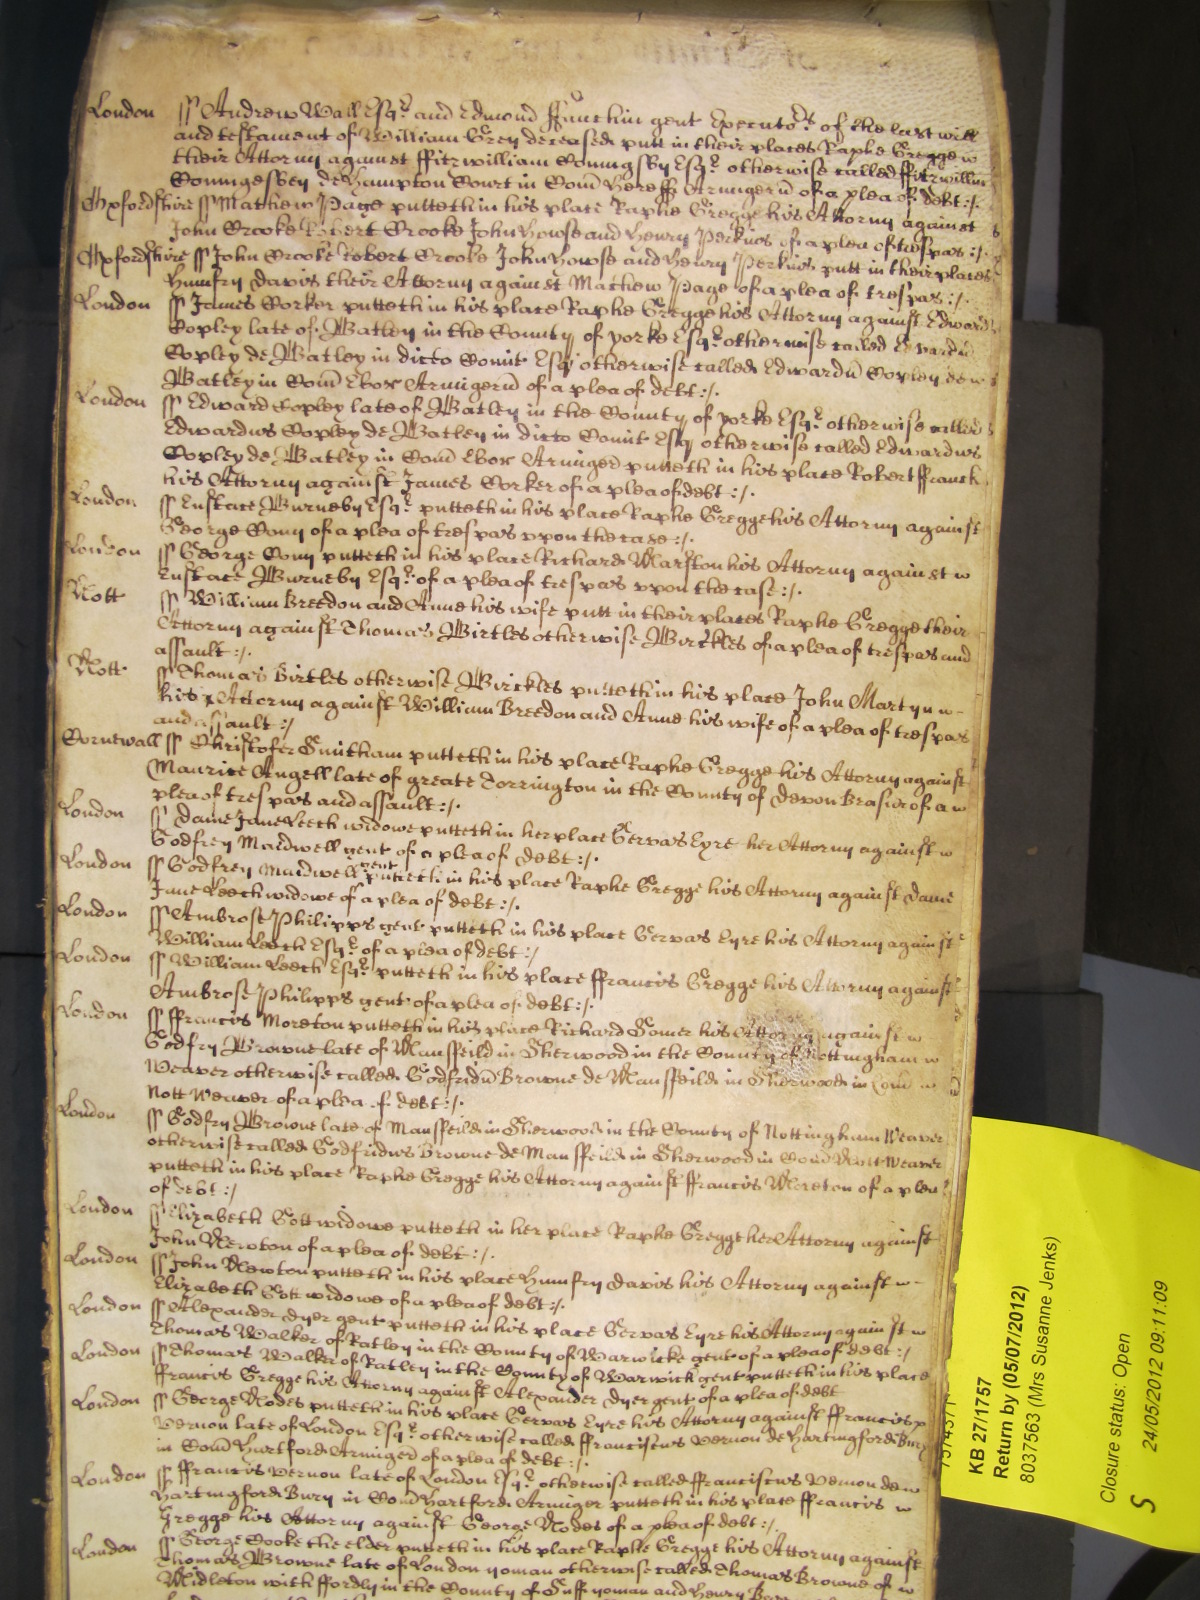 London ss Andrew Wall Esqr. and Edmond ffunchin gent Executors of the last will
and testament of William Grey deceased putt in their places Raphe Gregge
their Attorny against ffitzwilliam Coningsby Esqr. otherwise called ffitzwillm
Coningesbey de Hampton Court in Com Hereff Armigerū of a plea of debt:/.
Oxfordshire ss Mathew Page putteth in his place Raphe Gregge his Attorny against
John Crooke Robert Crooke John Howse and Henry Perkins of a plea of trespas:/.
Oxfordshire ss John Crooke Robert Crooke John Howse and Henry Perkins putt in their places
Humfry Davis their Attorny against Mathew Page of a plea of trespas:/.
London ss James Corker putteth in his place Raphe Gregge his Attorny against Edward
Copley late of Batley in the County of yorke Esqr. otherwise called Edwardū
Copley de Batley in dicto Comit Esq otherwise called Edwardū Copley de
Batley in Com Ebor Armigerū of a plea of debt:/.
London ss Edward Copley late of Batley in the County of yorke Esqr. otherwise called
Edwardus Copley de Batley in dicto Comit Esq otherwise called Edwardus
Copley de Batley in Com Ebor Armiger putteth in his place Robert ffranck
his Attorny against James Corker of a plea of debt:/.
London ss Eustace Burneby Esqr. putteth in his place Raphe Gregge his Attorny against
George Cony of a plea of trespas vpon the case:/.
London ss George Cony putteth in his place Richard Marston his Attorny against
Eustace Burneby Esqr. of a plea of trespas vpon the case:/.
Nott ss William Breedon and Anne his wife putt in their places Raphe Gregge their
Attorny against Thomas Birtles otherwise Birckles of a plea of trespas and
assault:/.
Nott ss Thomas Birtles otherwise Birckles putteth in his place John Martyn
his Attorny against William Breedon and Anne his wife of a plea of trespas
and assault:/
Cornewall ss Christofer Smitham putteth in his place Raphe Gregge his Attorny against
Maurice Angell late of greate Torrington in the County of Devon Brasier of a
plea of trespas and assault:/.
London ss Dame Jane Leech widowe putteth in her place Gervas Eyre her Attorny against
Godfrey Maidwell gent of a plea of debt:/.
London ss Godfrey Maidwell gent putteth in his place Raphe Gregge his Attorny against Dame
Jane Leech widowe of a plea of debt:/.
London ss Ambrose Philipps gent putteth in his place Gervas Eyre his Attorny against
William Leech Esqr. of a plea of debt:/
London ss William Leech Esqr. putteth in his place ffrancis Gregge his Attorny against
Ambrose Philipps gent of a plea of debt:/.
London ss ffrancis Moreton putteth in his place Richard Somer his Attorny against
Godfry Browne late of Mansfeild in Sherwood in the County of Nottingham
Weaver otherwise called Godfridū Browne de Mansfeild in Sherwood in Com
Nott Weaver of a plea of debt:/.
London ss Godfry Browne late of Mansfeild in Sherwood in the County of Nottingham Weaver
otherwise called Godfridus Browne de Mansfeild in Sherwood in Com Nott Weaver
putteth in his place Raphe Gregge his Attorny against ffrancis Moreton of a plea
of debt:/
London ss Elizabeth Gott widowe putteth in her place Raphe Gregge her Attorny against
John Newton of a plea of debt:/.
London ss John Newton putteth in his place Humfry Davis his Attorny against
Elizabeth Gott widowe of a plea of debt:/.
London ss Alexander Dyer gent putteth in his place Gervas Eyre his Attorny against
Thomas Walker of Ratley in the County of Warwicke gent of a plea of debt:/
London ss Thomas Walker of Ratley in the County of Warwick gent putteth in his place
ffrancis Gregge his Attorny against Alexander Dyer gent of a plea of debt
London ss George Nodes putteth in his place Gervas Eyre his Attorny against ffrancis
Vernon late of London Esqr. otherwise called ffranciscus Vernon de Hartingfordi Bury
in Com Hartford Armiger of a plea of debt:/.
London ss ffrancis Vernon late of London Esqr. otherwise called ffranciscus Vernon de
Hartingford Bury in Com Hartford Armiger putteth in his place ffrancis
Gregge his Attorny against George Nodes of a plea of debt:/.
London ss George Cooke the elder putteth in his place Raphe Gregge his Attorny against
Thomas Browne late of London yoman otherwise called Thomas Browne of
Midleton with ffordly in the County of Suff yoman and Henry
KB 27/1757
Return by (05/07/2012)
8037563 (Mrs Susanne Jenks)
Closure status: Open
S 24/05/2012 09:11:09